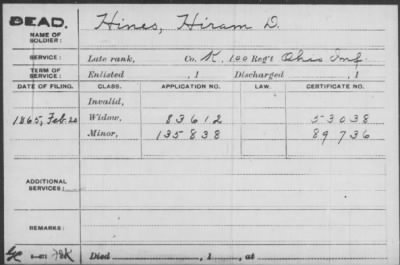 DEAD.
NAME OF SOLDIER: Hines, Hiram D.
SERVICE: Late rank, Co. K, 100 Reg't Ohio Inf.
TERM OF SERVICE: Enlisted , 1 Discharged , 1
DATE OF FILING. CLASS. APPLICATION NO. LAW. CERTIFICATE NO.
Invalid,
1865, Feb. 20 Widow, 83612 53038
Minor, 135838 89736
ADDITIONAL SERVICES:
REMARKS:
Died , 1 , at